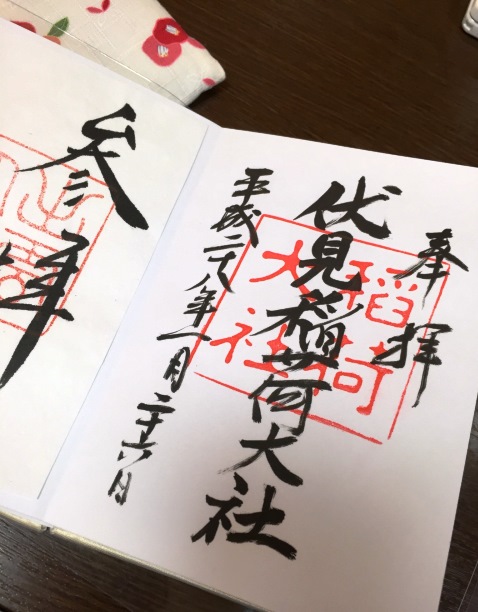 奉拝
伏見稲荷大社
平成二十八年一月二十六日
稲荷
大社
参拝